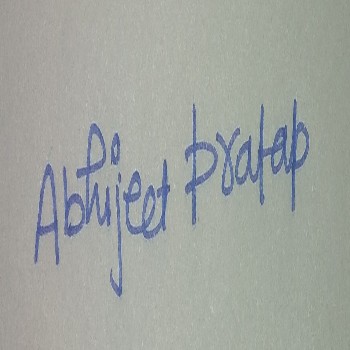 Abhijeet Pratap